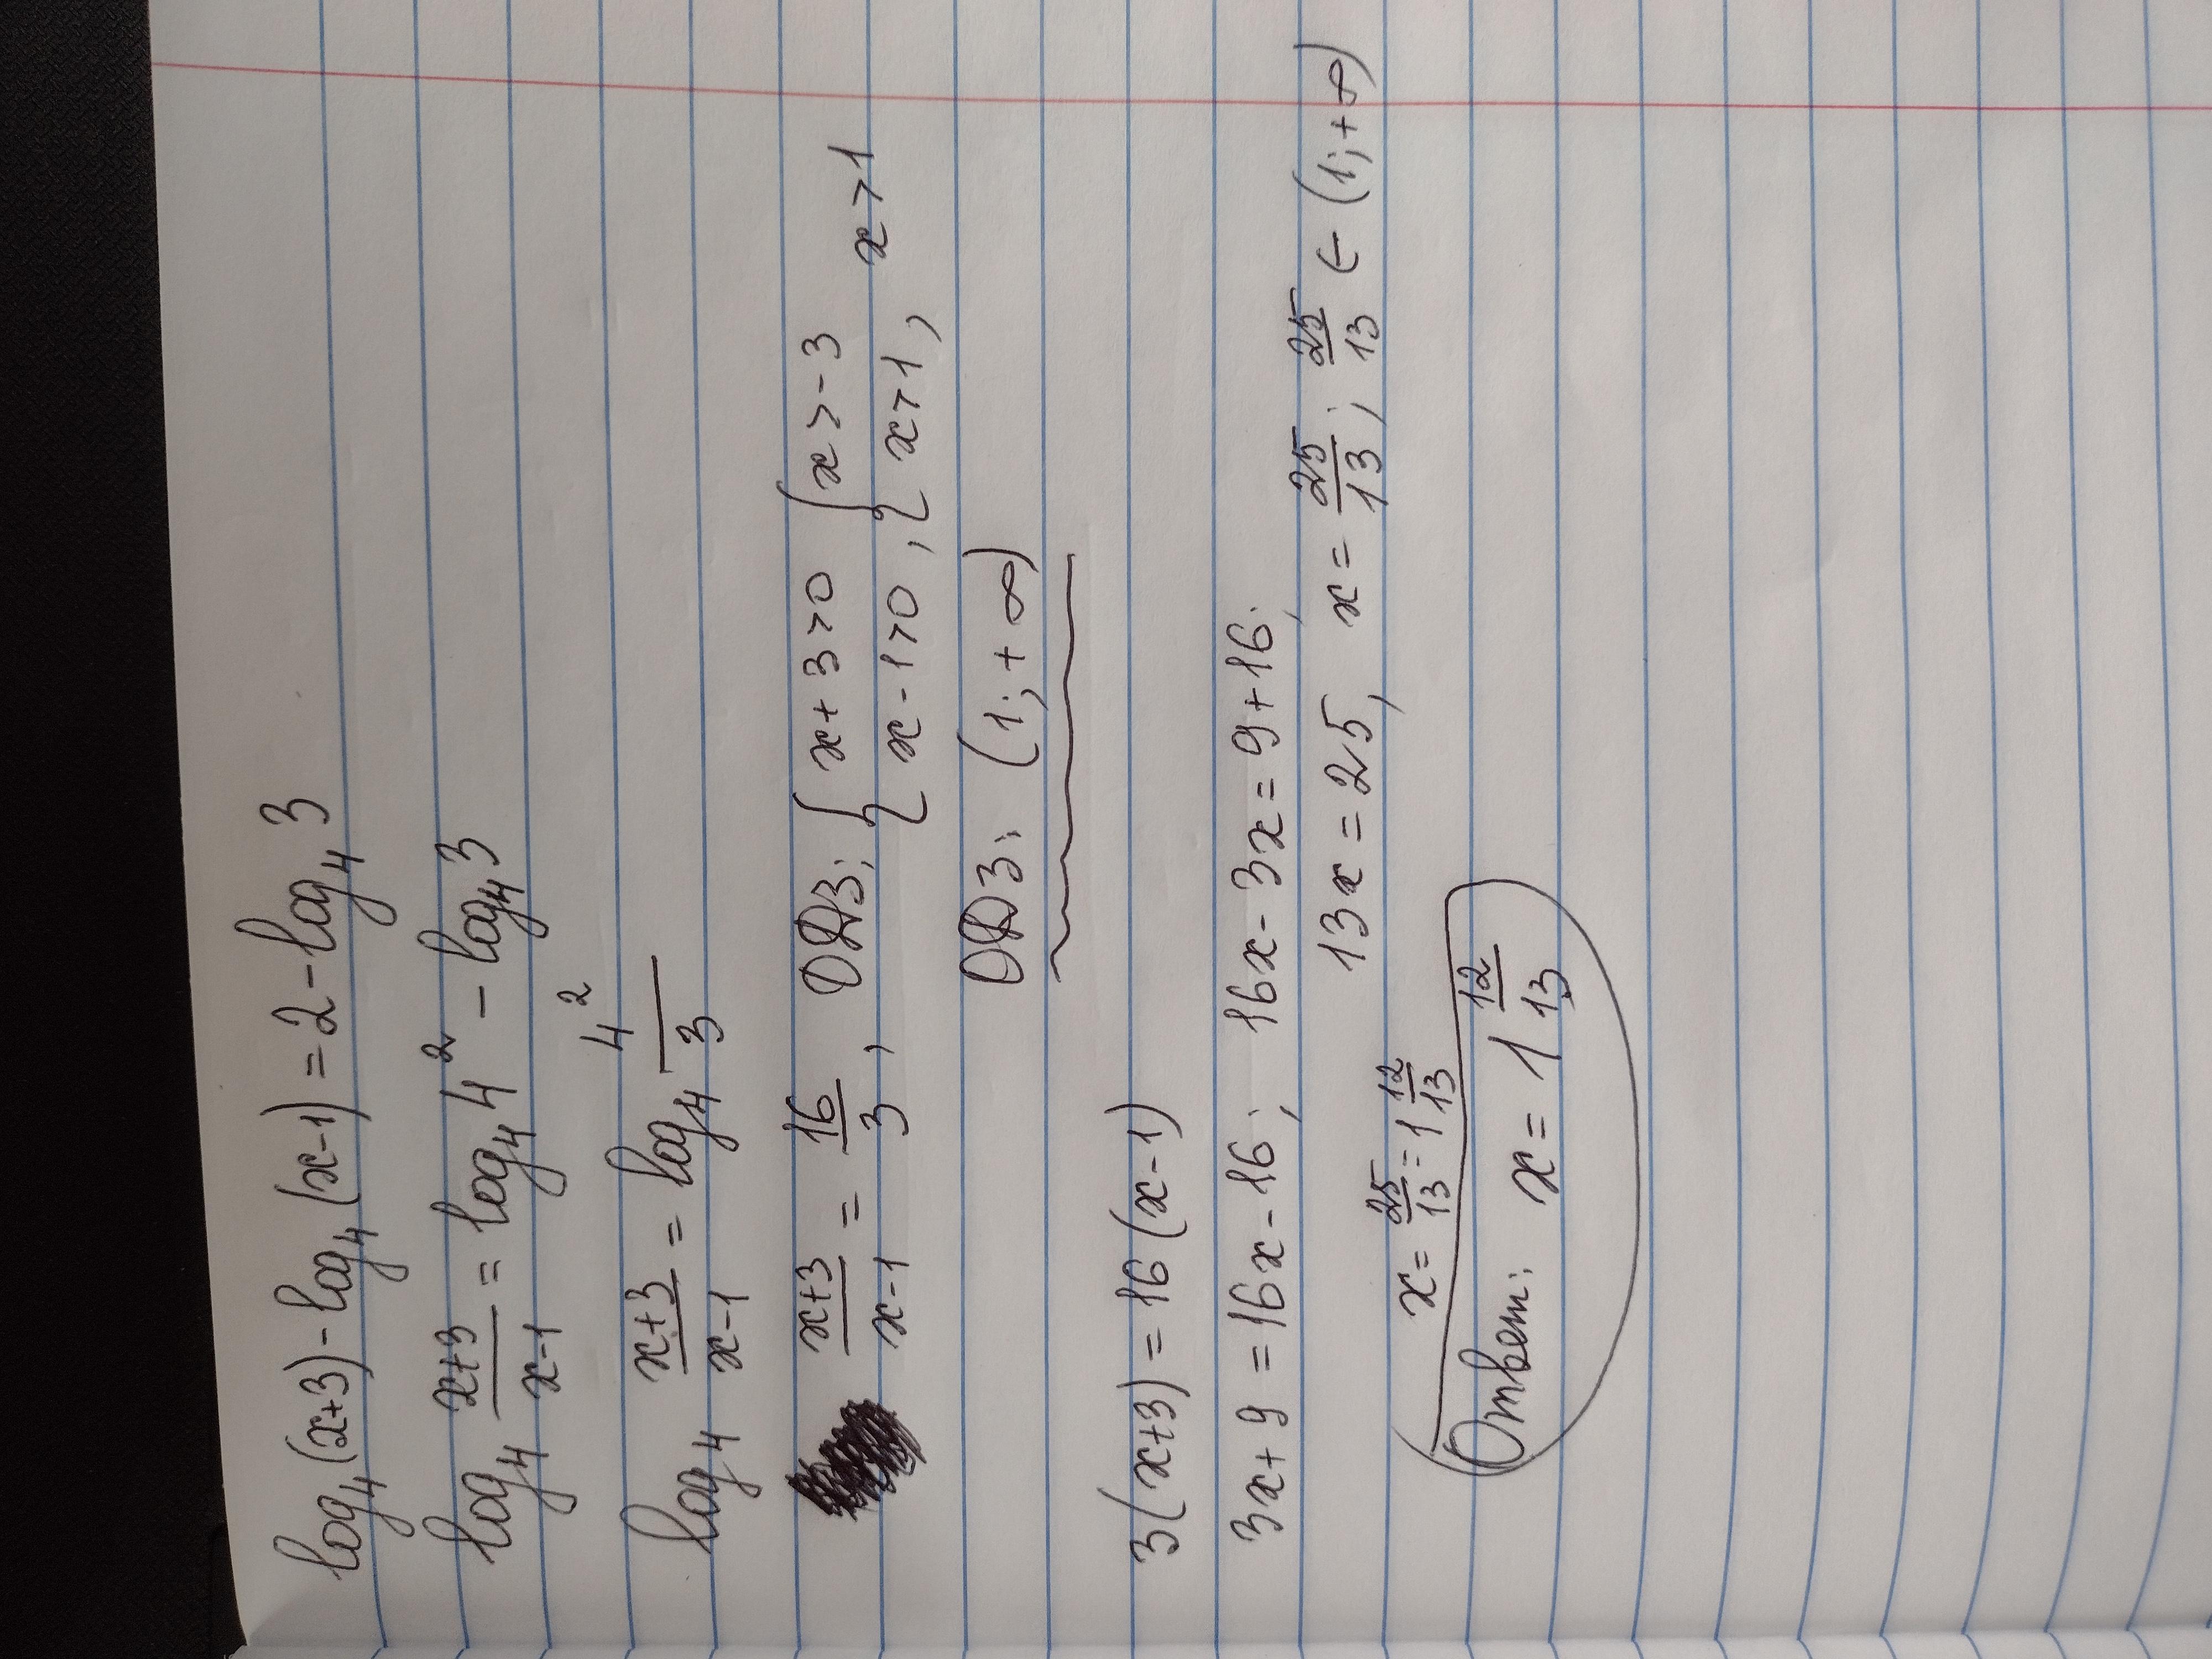 log₄(x+3) - log₄(x-1) = 2 - log₄3
log₄ (x+3)/(x-1) = log₄4² - log₄3
log₄ (x+3)/(x-1) = log₄ 4²/3
(x+3)/(x-1) = 16/3, ОДЗ: { x+3>0 { x>-3
x-1>0, { x>1, x>1
ОДЗ: (1; +∞)
3(x+3) = 16(x-1)
3x+9 = 16x-16; 16x-3x = 9+16;
13x = 25, x = 25/13; 25/13 ∈ (1; +∞)
x = 25/13 = 1 12/13
Ответ: x = 1 12/13